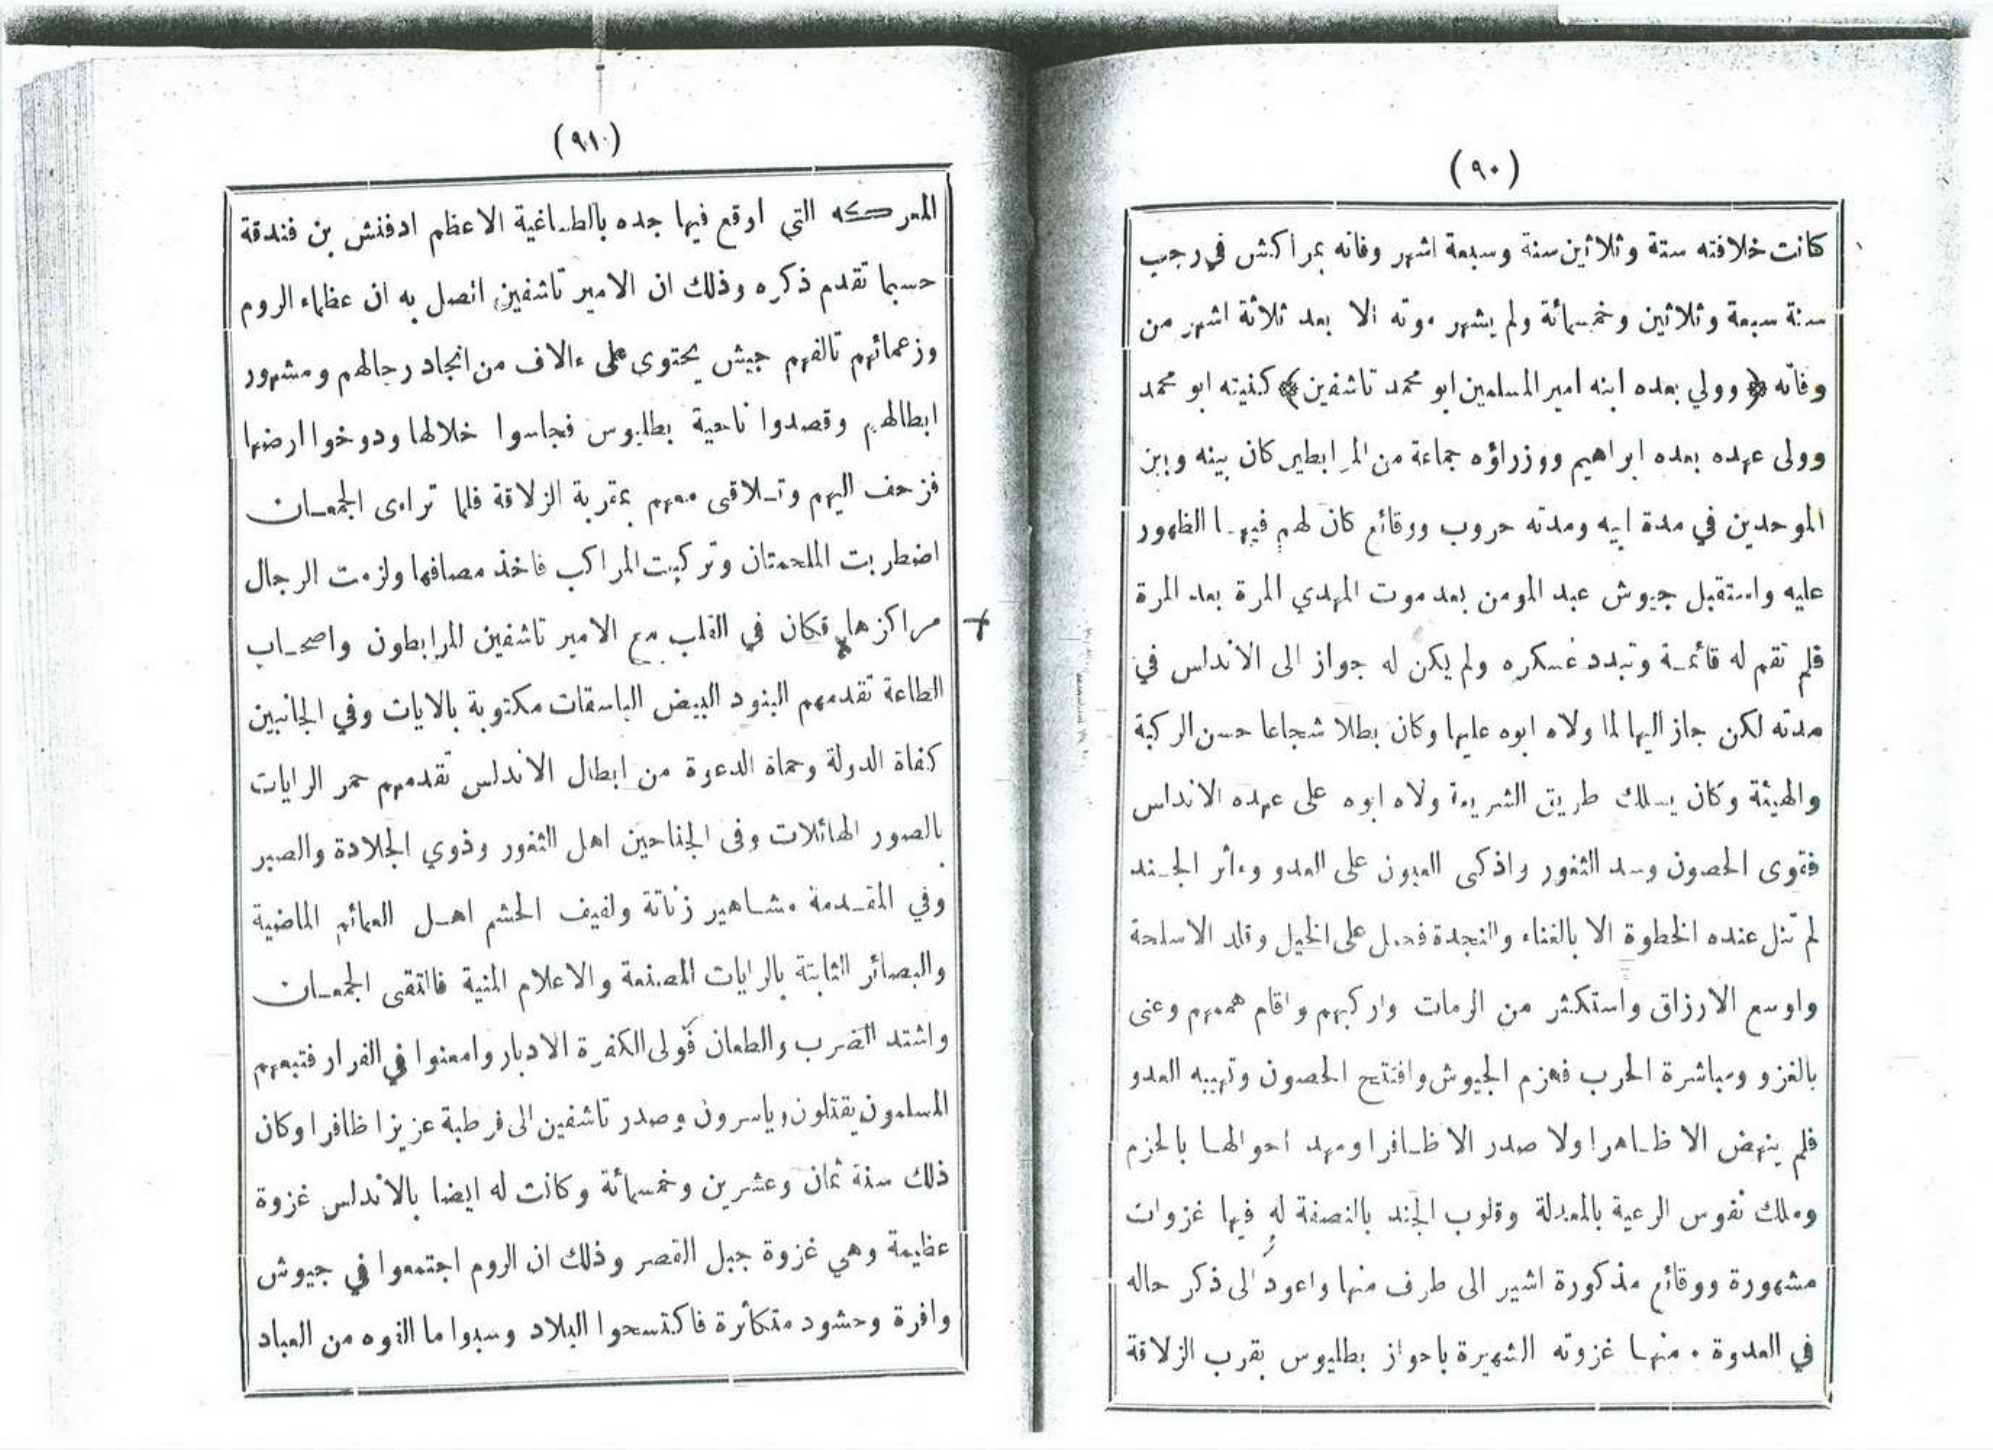 (٩٠)
كانت خلافته ستة وثلاثين سنة وسبعة اشهر وفاته بمراكش في رجب
سنة سبعة وثلاثين وخمسمائة ولم يشهر موته الا بعد ثلاثة اشهر من
وفاته ﴿ وولي بعده ابنه امير المسلمين ابو محمد تاشفين ﴾ كنيته ابو محمد
وولى عهده بعده ابراهيم ووزراؤه جماعة من المرابطين كان بينه وبين
الموحدين في مدة ابيه ومدته حروب ووقائع كان لهم فيها الظهور
عليه واستقبل جيوش عبد المومن بعد موت المهدي المرة بعد المرة
فلم تقم له قائمة وتبدد عسكره ولم يكن له جواز الى الاندلس في
مدته لكن جاز اليها لما ولاه ابوه عليها وكان بطلا شجاعا حسن الركبة
والهيئة وكان يسلك طريق الشريعة ولاه ابوه على عهده الاندلس
فقوى الحصون وسد الثغور واذكى العيون على العدو وءاثر الجند
لم تنل عنده الخطوة الا بالغناء والنجدة فحمل على الخيل وقلد الاسلحة
واوسع الارزاق واستكثر من الرمات واركبهم واقام هممهم وعنى
بالغزو ومباشرة الحرب فهزم الجيوش وافتتح الحصون وتهيبه العدو
فلم ينهض الا ظاهرا ولا صدر الا ظافرا ومهد احوالها بالحزم
وملك نفوس الرعية بالمعدلة وقلوب الجند بالنصفة له فيها غزوات
مشهورة ووقائع مذكورة اشير الى طرف منها واعود الى ذكر حاله
في العدوة . منها غزوته الشهيرة باحواز بطليوس بقرب الزلاقة
(٩١)
المعركة التي اوقع فيها جده بالطاغية الاعظم ادفنش بن فندقة
حسبما تقدم ذكره وذلك ان الامير تاشفين اتصل به ان عظماء الروم
وزعمائهم تالفهم جيش يحتوى على ءالاف من انجاد رجالهم ومشهور
ابطالهم وقصدوا ناحية بطليوس فجاسوا خلالها ودوخوا ارضها
فزحف اليهم وتلاقى معهم بمقربة الزلاقة فلما تراءى الجمعان
اضطربت الملحمتان وتركبت المراكب فاخذ مصافها ولزمت الرجال
مراكزها فكان في القلب مع الامير تاشفين المرابطون واصحاب
الطاعة تقدمهم البنود البيض الباسقات مكتوبة بالايات وفي الجانبين
كفاة الدولة وحماة الدعوة من ابطال الاندلس تقدمهم حمر الرايات
بالصور الهائلات وفى الجناحين اهل الثغور وذوي الجلادة والصبر
وفي المقدمة مشاهير زناتة ولفيف الحشم اهل العمائم الماضية
والبصائر الثابتة بالرايات المصنعة والاعلام المنية فالتقى الجمعان
واشتد الضرب والطعان فولى الكفرة الادبار وامعنوا في الفرار فتبعهم
المسلمون يقتلون وياسرون وصدر تاشفين الى قرطبة عزيزا ظافرا وكان
ذلك سنة ثمان وعشرين وخمسمائة وكانت له ايضا بالاندلس غزوة
عظيمة وهي غزوة جبل القصر وذلك ان الروم اجتمعوا في جيوش
وافرة وحشود متكاثرة فاكتسحوا البلاد وسبوا ما الفوه من العباد